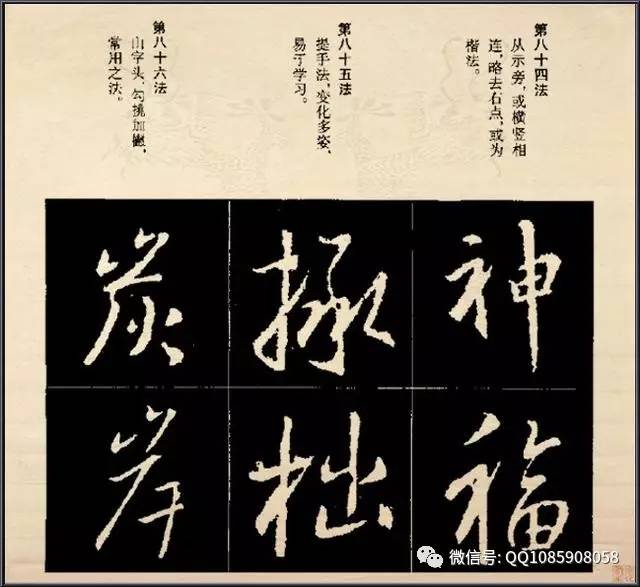 第八十四法
从示旁，或横竖相
连，略去右点，或为
楷法。
第八十五法
提手法，变化多姿、
易于学习。
第八十六法
山字头、勾挑加撇，
常用之法。
神
福
拙
炭
岸
微信号: QQ1085908058